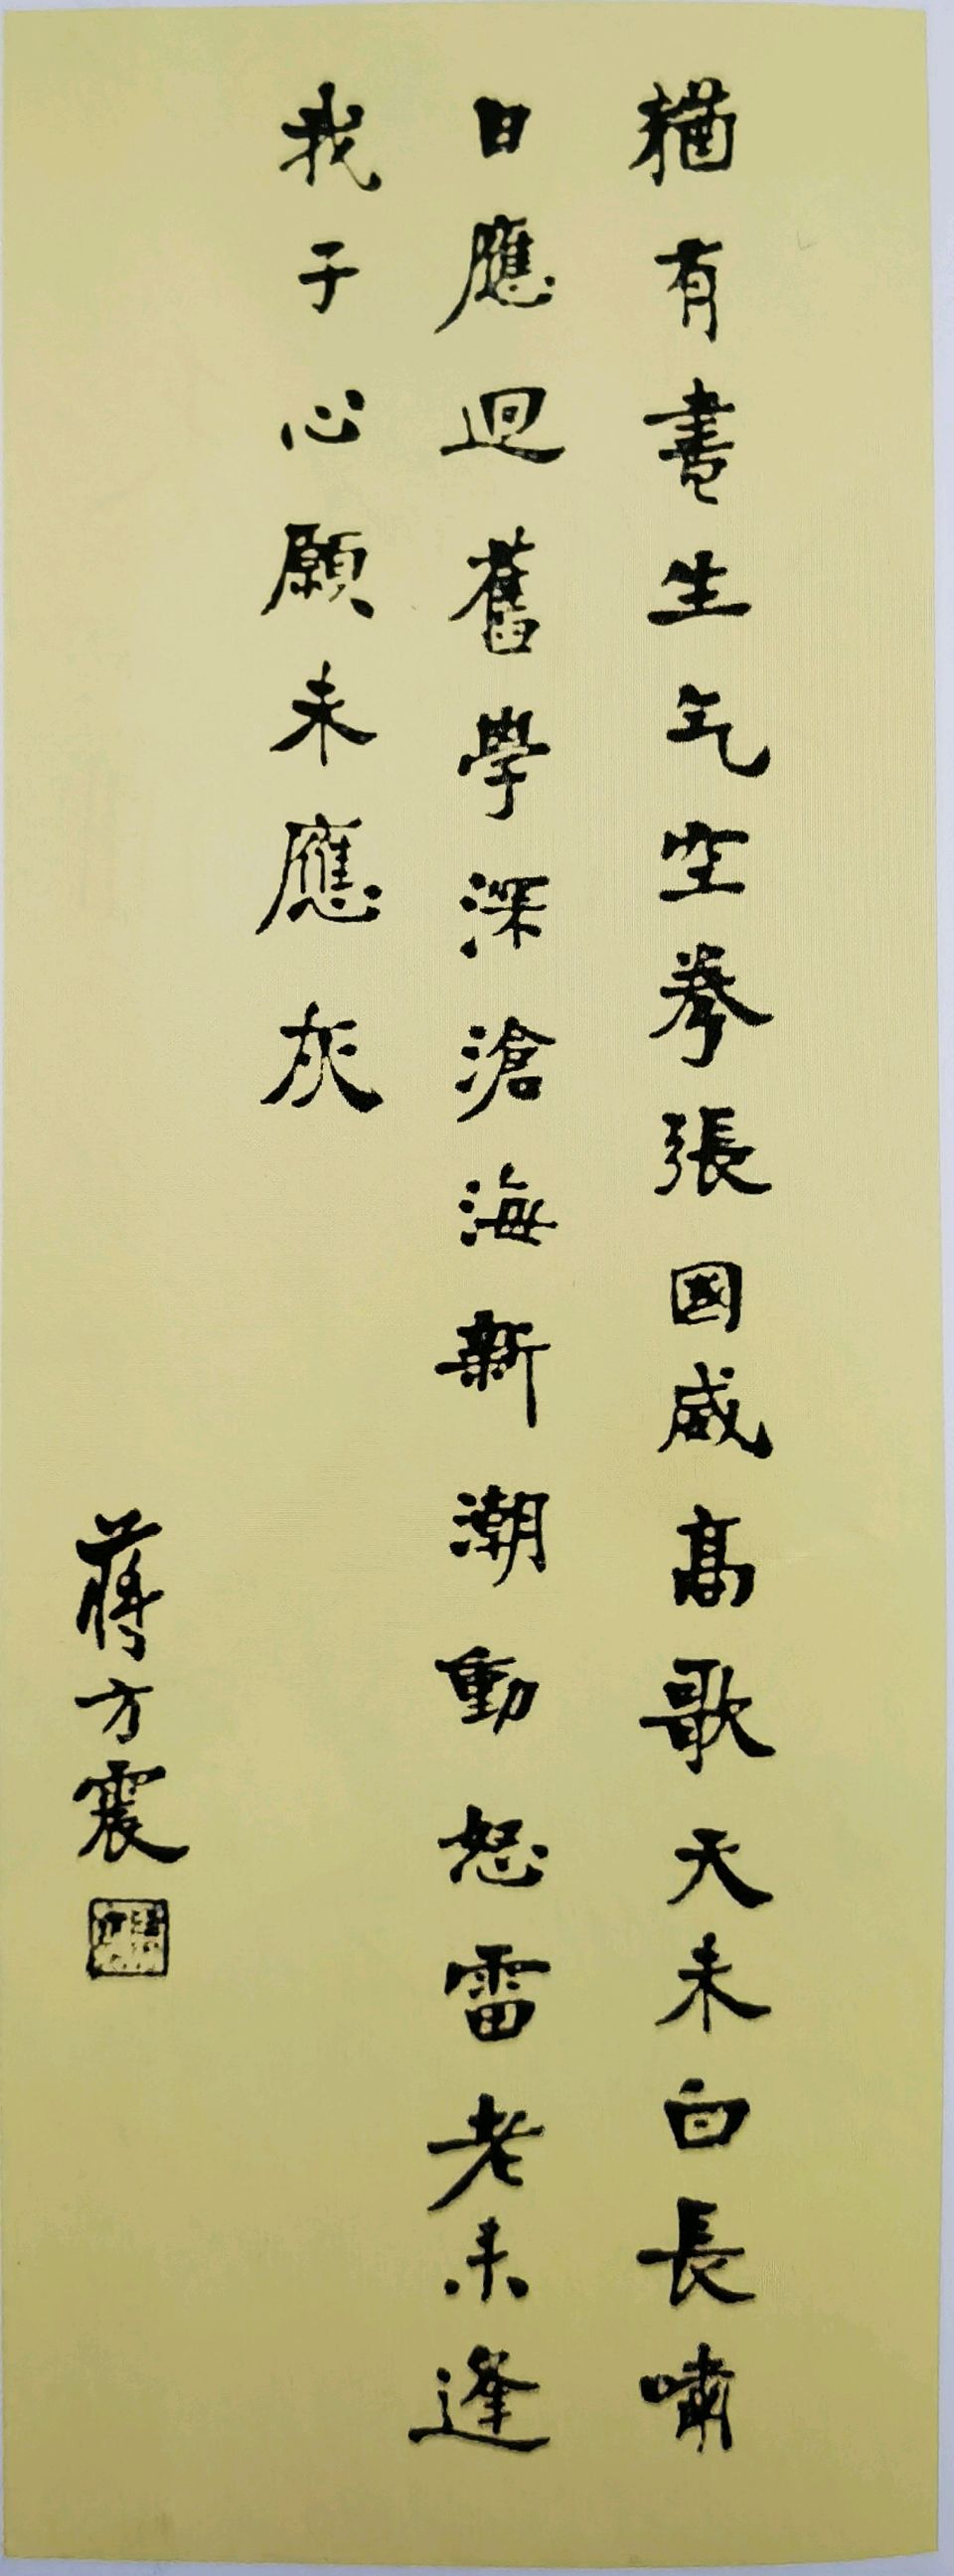 猶有書生气空拳張國威高歌天未白長嘯
日應迴舊學深滄海新潮動怒雷老来逢
我子心願未應灰
蔣方震